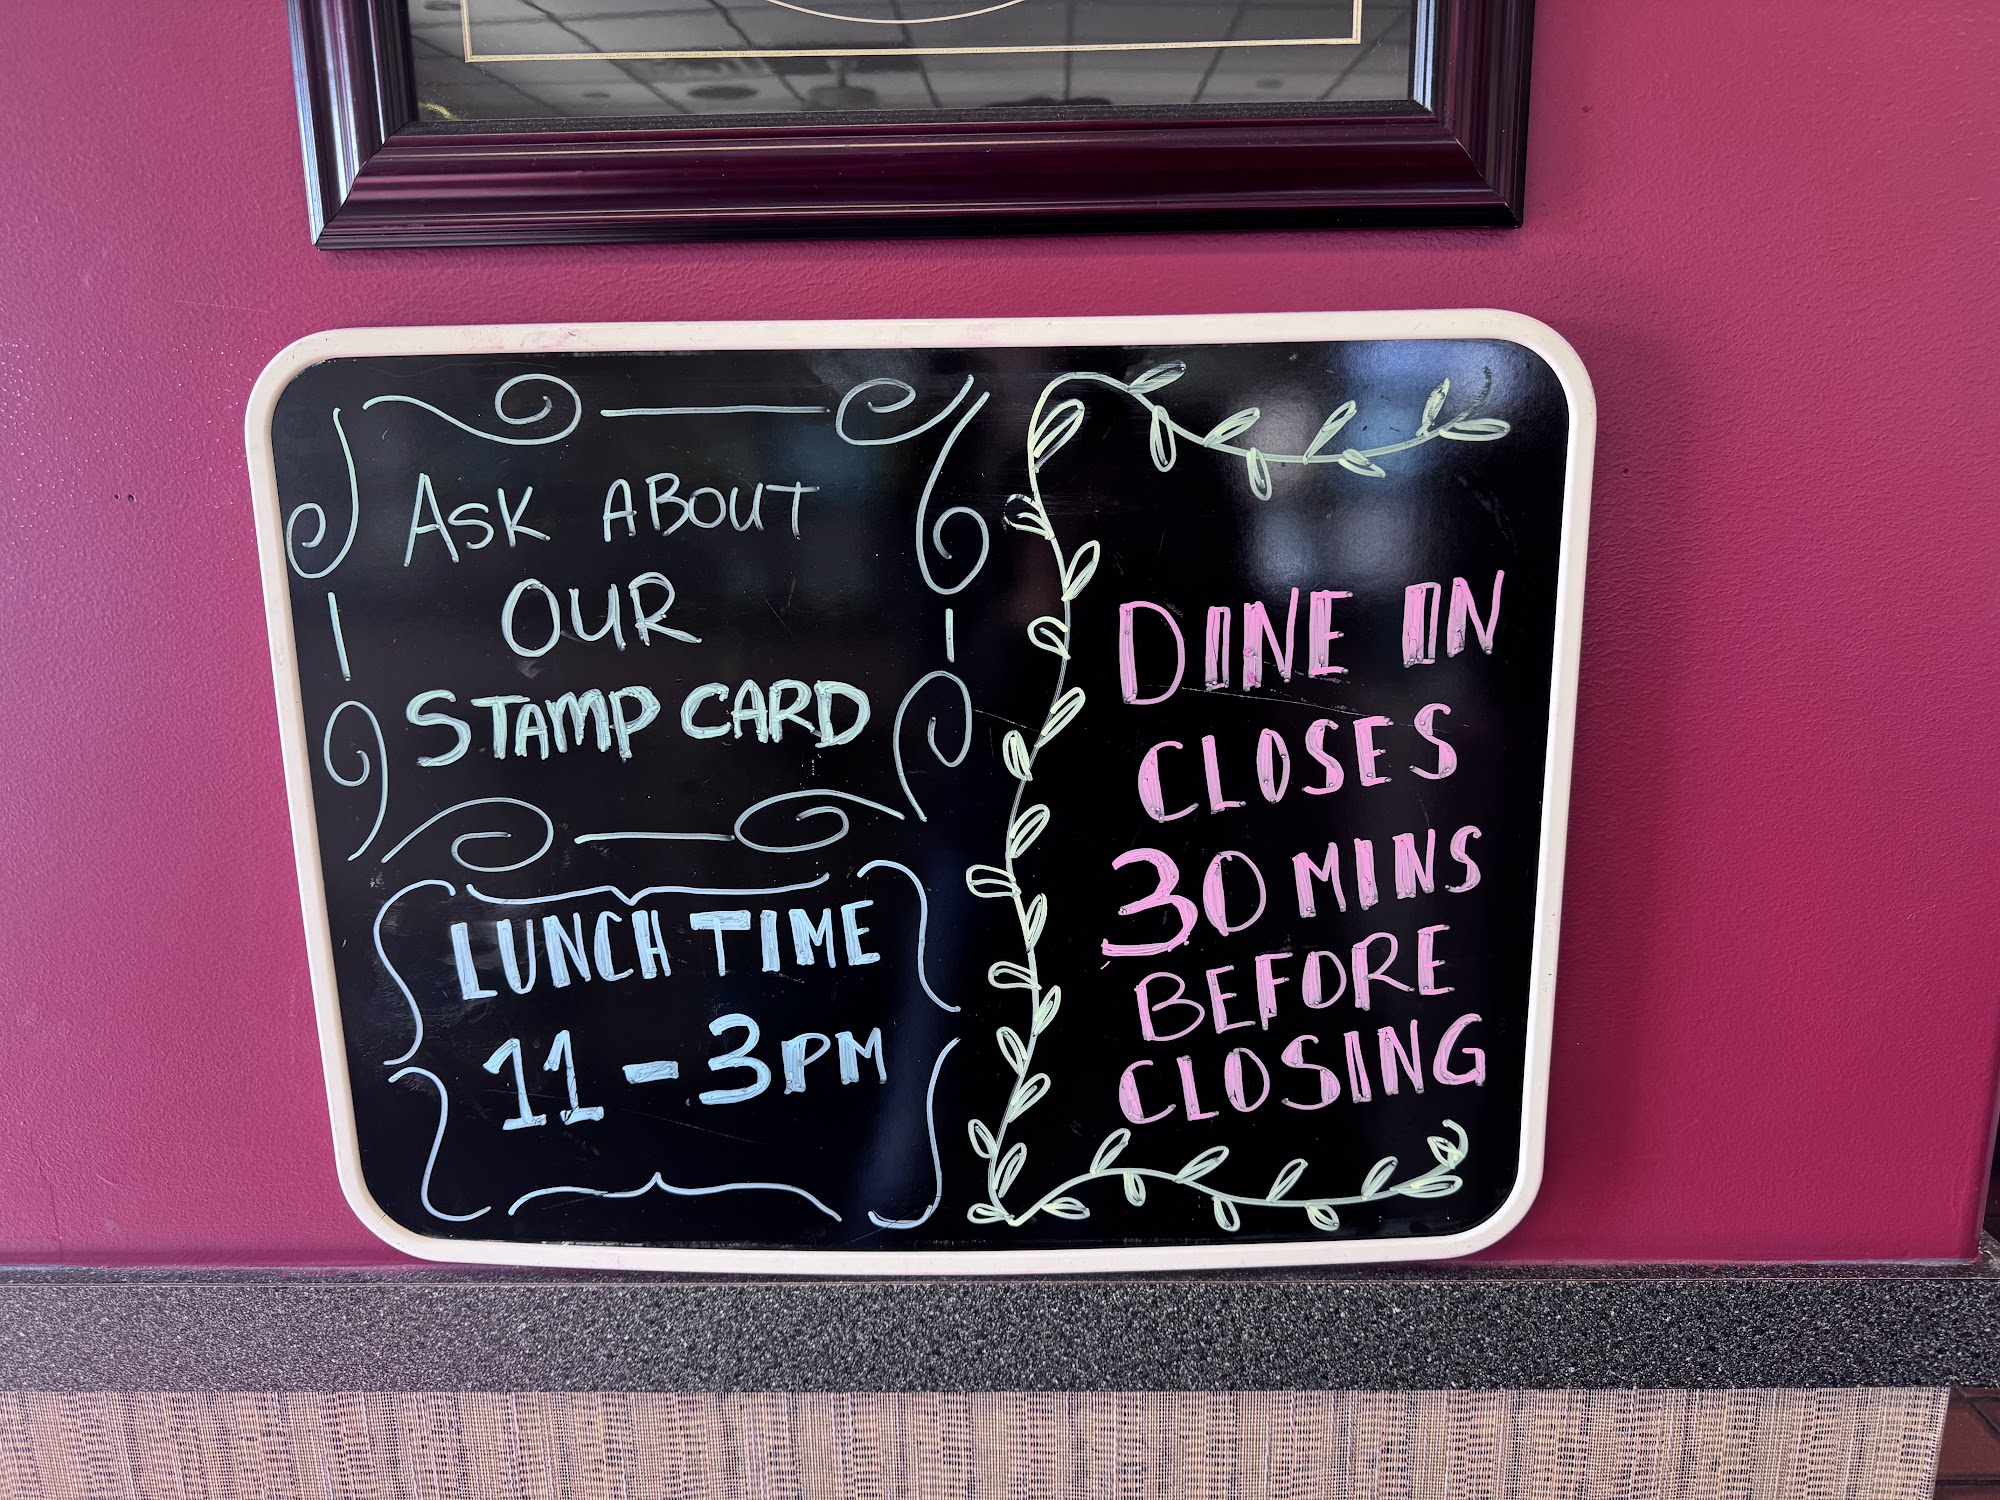 ASK ABOUT
OUR
STAMP CARD
LUNCH TIME
11 - 3PM
DINE IN
CLOSES
30 MINS
BEFORE
CLOSING